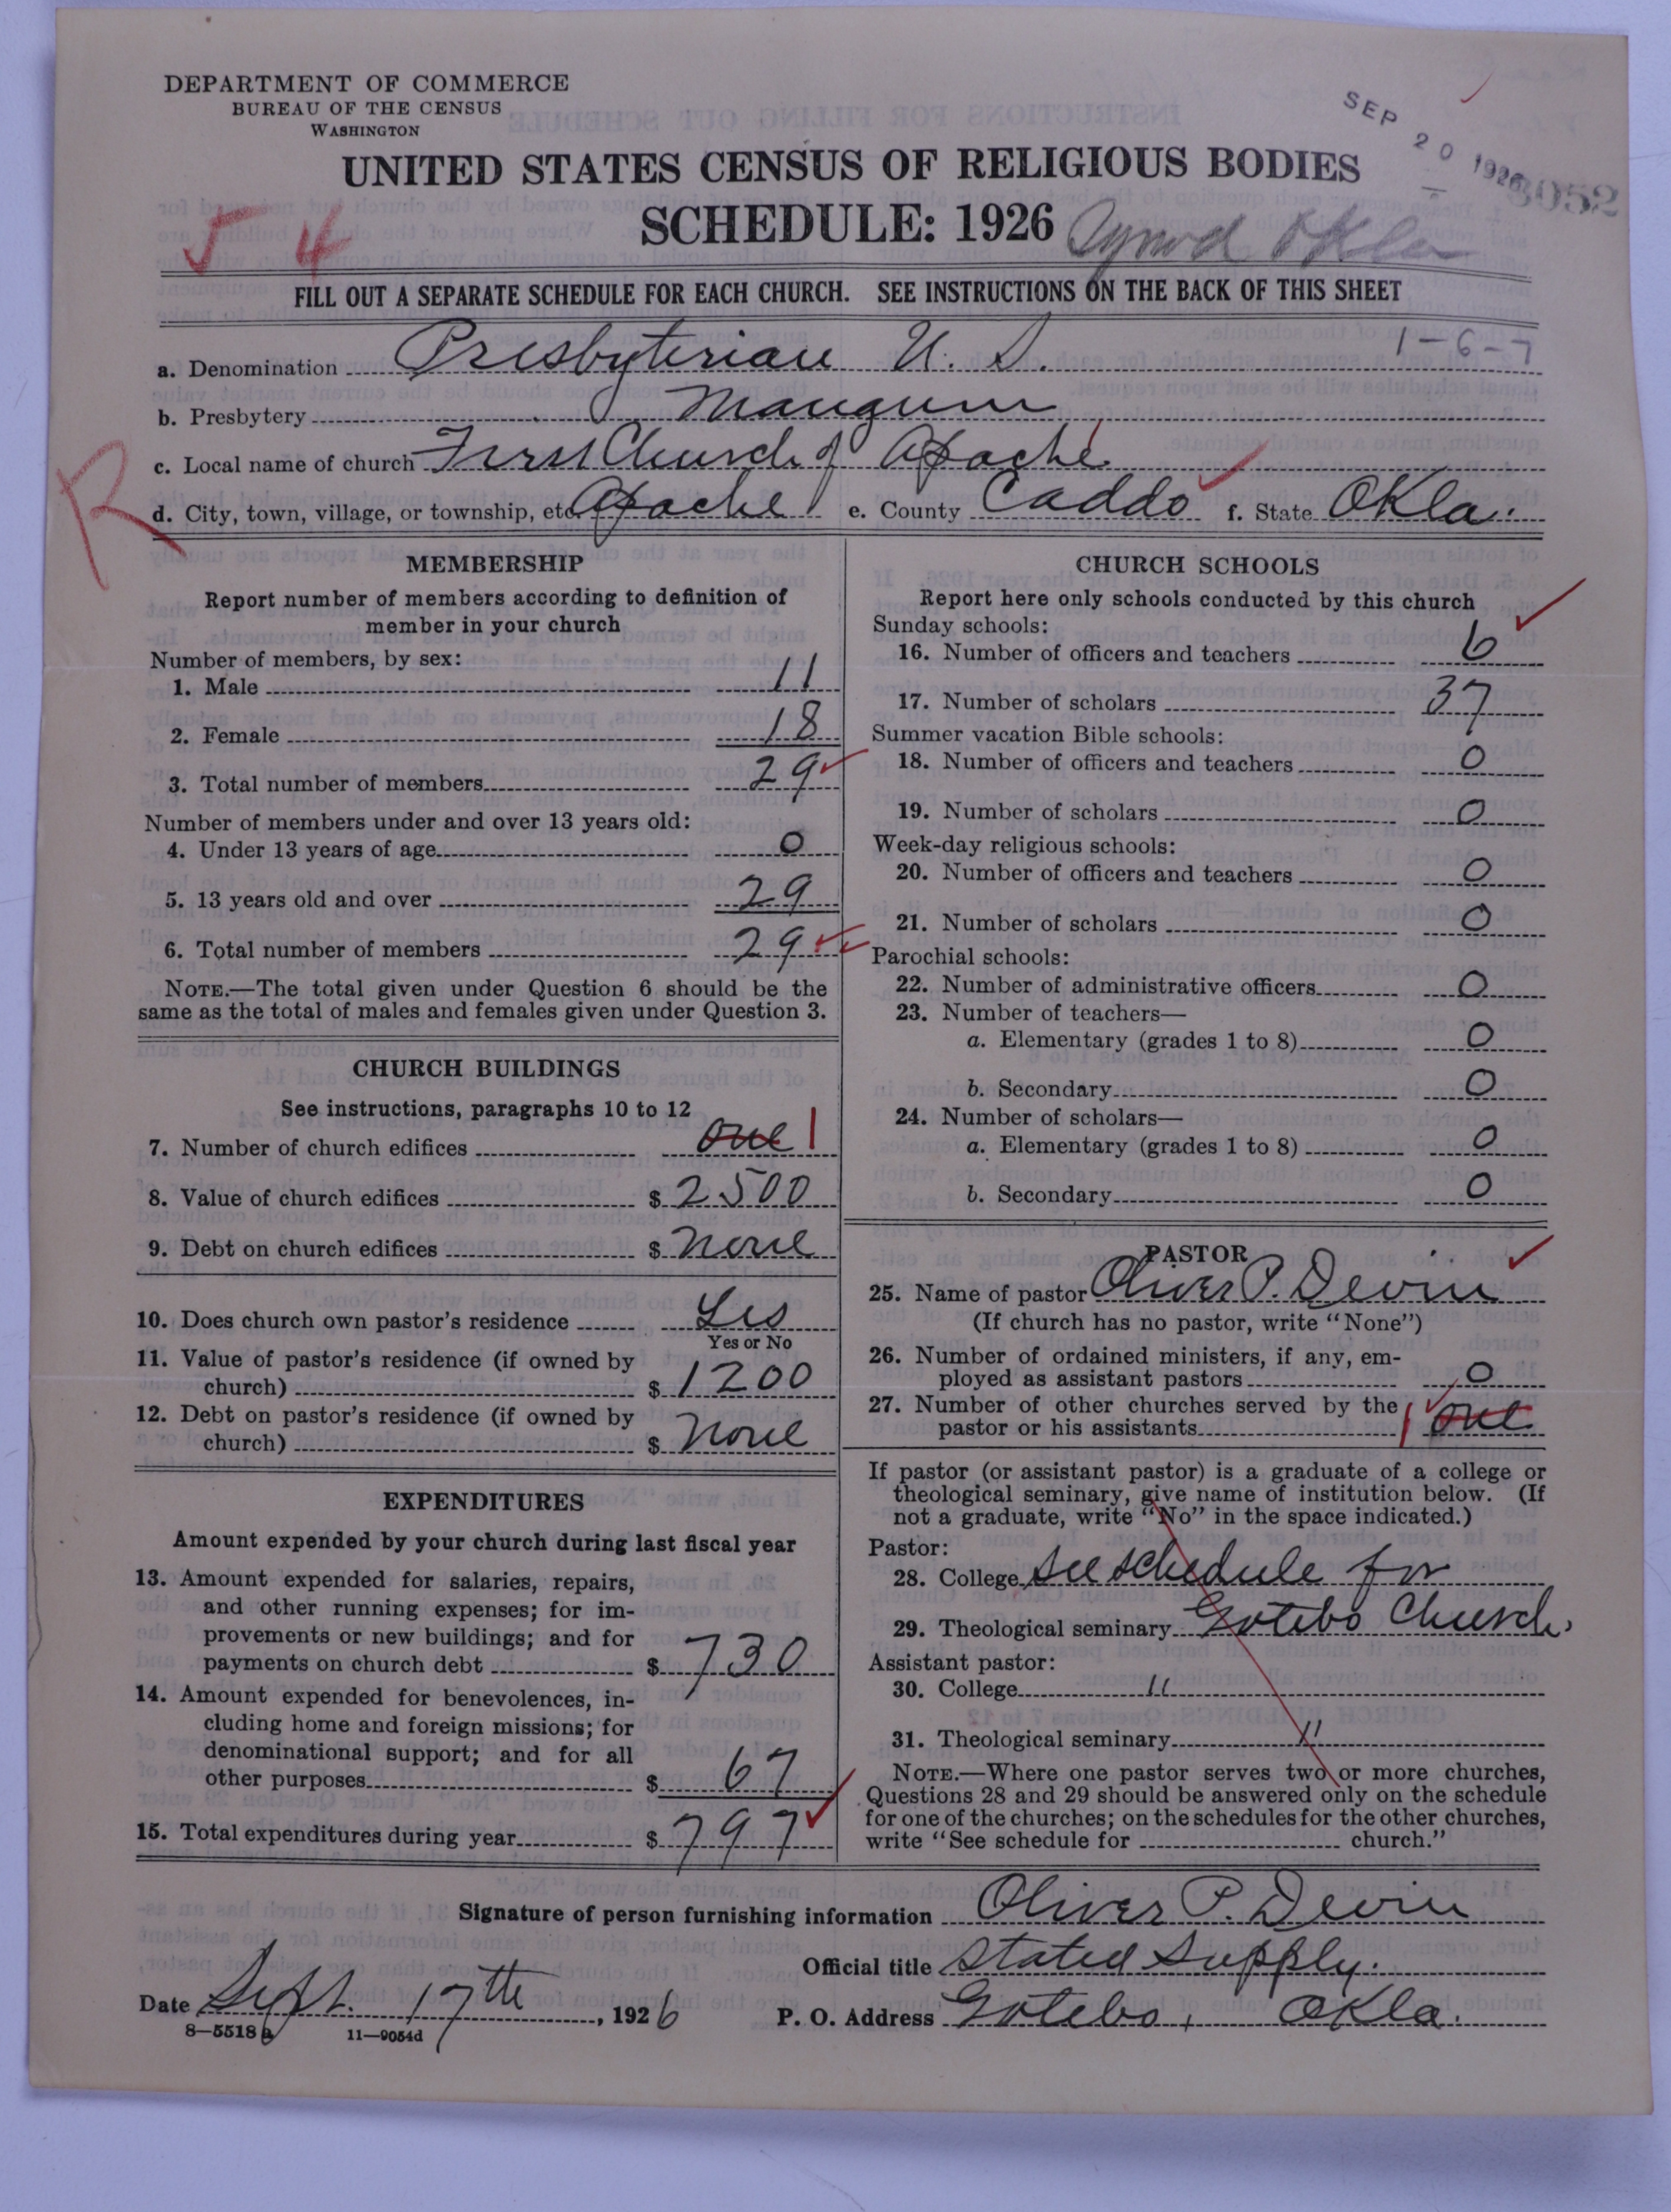 DEPARTMENT OF COMMERCE
BUREAU OF THE CENSUS
WASHINGTON
SEP 20 1926
UNITED STATES CENSUS OF RELIGIOUS BODIES
SCHEDULE: 1926 Synod Okla
5 4
FILL OUT A SEPARATE SCHEDULE FOR EACH CHURCH. SEE INSTRUCTIONS ON THE BACK OF THIS SHEET
1-6-7
a. Denomination Presbyterian U. S.
b. Presbytery Mangum
c. Local name of church First Church of Apache
R
d. City, town, village, or township, etc. Apache e. County Caddo f. State Okla.
MEMBERSHIP
Report number of members according to definition of
member in your church
Number of members, by sex:
1. Male 11
2. Female 18
3. Total number of members 29
Number of members under and over 13 years old:
4. Under 13 years of age 0
5. 13 years old and over 29
6. Total number of members 29
NOTE.—The total given under Question 6 should be the
same as the total of males and females given under Question 3.
CHURCH BUILDINGS
See instructions, paragraphs 10 to 12
7. Number of church edifices one 1
8. Value of church edifices $ 2500
9. Debt on church edifices $ none
10. Does church own pastor's residence Yes
Yes or No
11. Value of pastor's residence (if owned by
church) $ 1200
12. Debt on pastor's residence (if owned by
church) $ none
EXPENDITURES
Amount expended by your church during last fiscal year
13. Amount expended for salaries, repairs,
and other running expenses; for im-
provements or new buildings; and for
payments on church debt $ 730
14. Amount expended for benevolences, in-
cluding home and foreign missions; for
denominational support; and for all
other purposes $ 67
15. Total expenditures during year $ 797
CHURCH SCHOOLS
Report here only schools conducted by this church
Sunday schools:
16. Number of officers and teachers 6
17. Number of scholars 37
Summer vacation Bible schools:
18. Number of officers and teachers 0
19. Number of scholars 0
Week-day religious schools:
20. Number of officers and teachers 0
21. Number of scholars 0
Parochial schools:
22. Number of administrative officers 0
23. Number of teachers—
a. Elementary (grades 1 to 8) 0
b. Secondary 0
24. Number of scholars—
a. Elementary (grades 1 to 8) 0
b. Secondary 0
PASTOR
25. Name of pastor Oliver P. Devin
(If church has no pastor, write "None")
26. Number of ordained ministers, if any, em-
ployed as assistant pastors 0
27. Number of other churches served by the
pastor or his assistants 1 one
If pastor (or assistant pastor) is a graduate of a college or
theological seminary, give name of institution below. (If
not a graduate, write "No" in the space indicated.)
Pastor:
28. College See schedule for
29. Theological seminary Gotebo Church.
Assistant pastor:
30. College "
31. Theological seminary "
NOTE.—Where one pastor serves two or more churches,
Questions 28 and 29 should be answered only on the schedule
for one of the churches; on the schedules for the other churches,
write "See schedule for ______ church."
Signature of person furnishing information Oliver P. Devin
Official title Stated Supply.
Date Sept. 17th, 1926 P. O. Address Gotebo, Okla.
8—5518 a 11—9054d